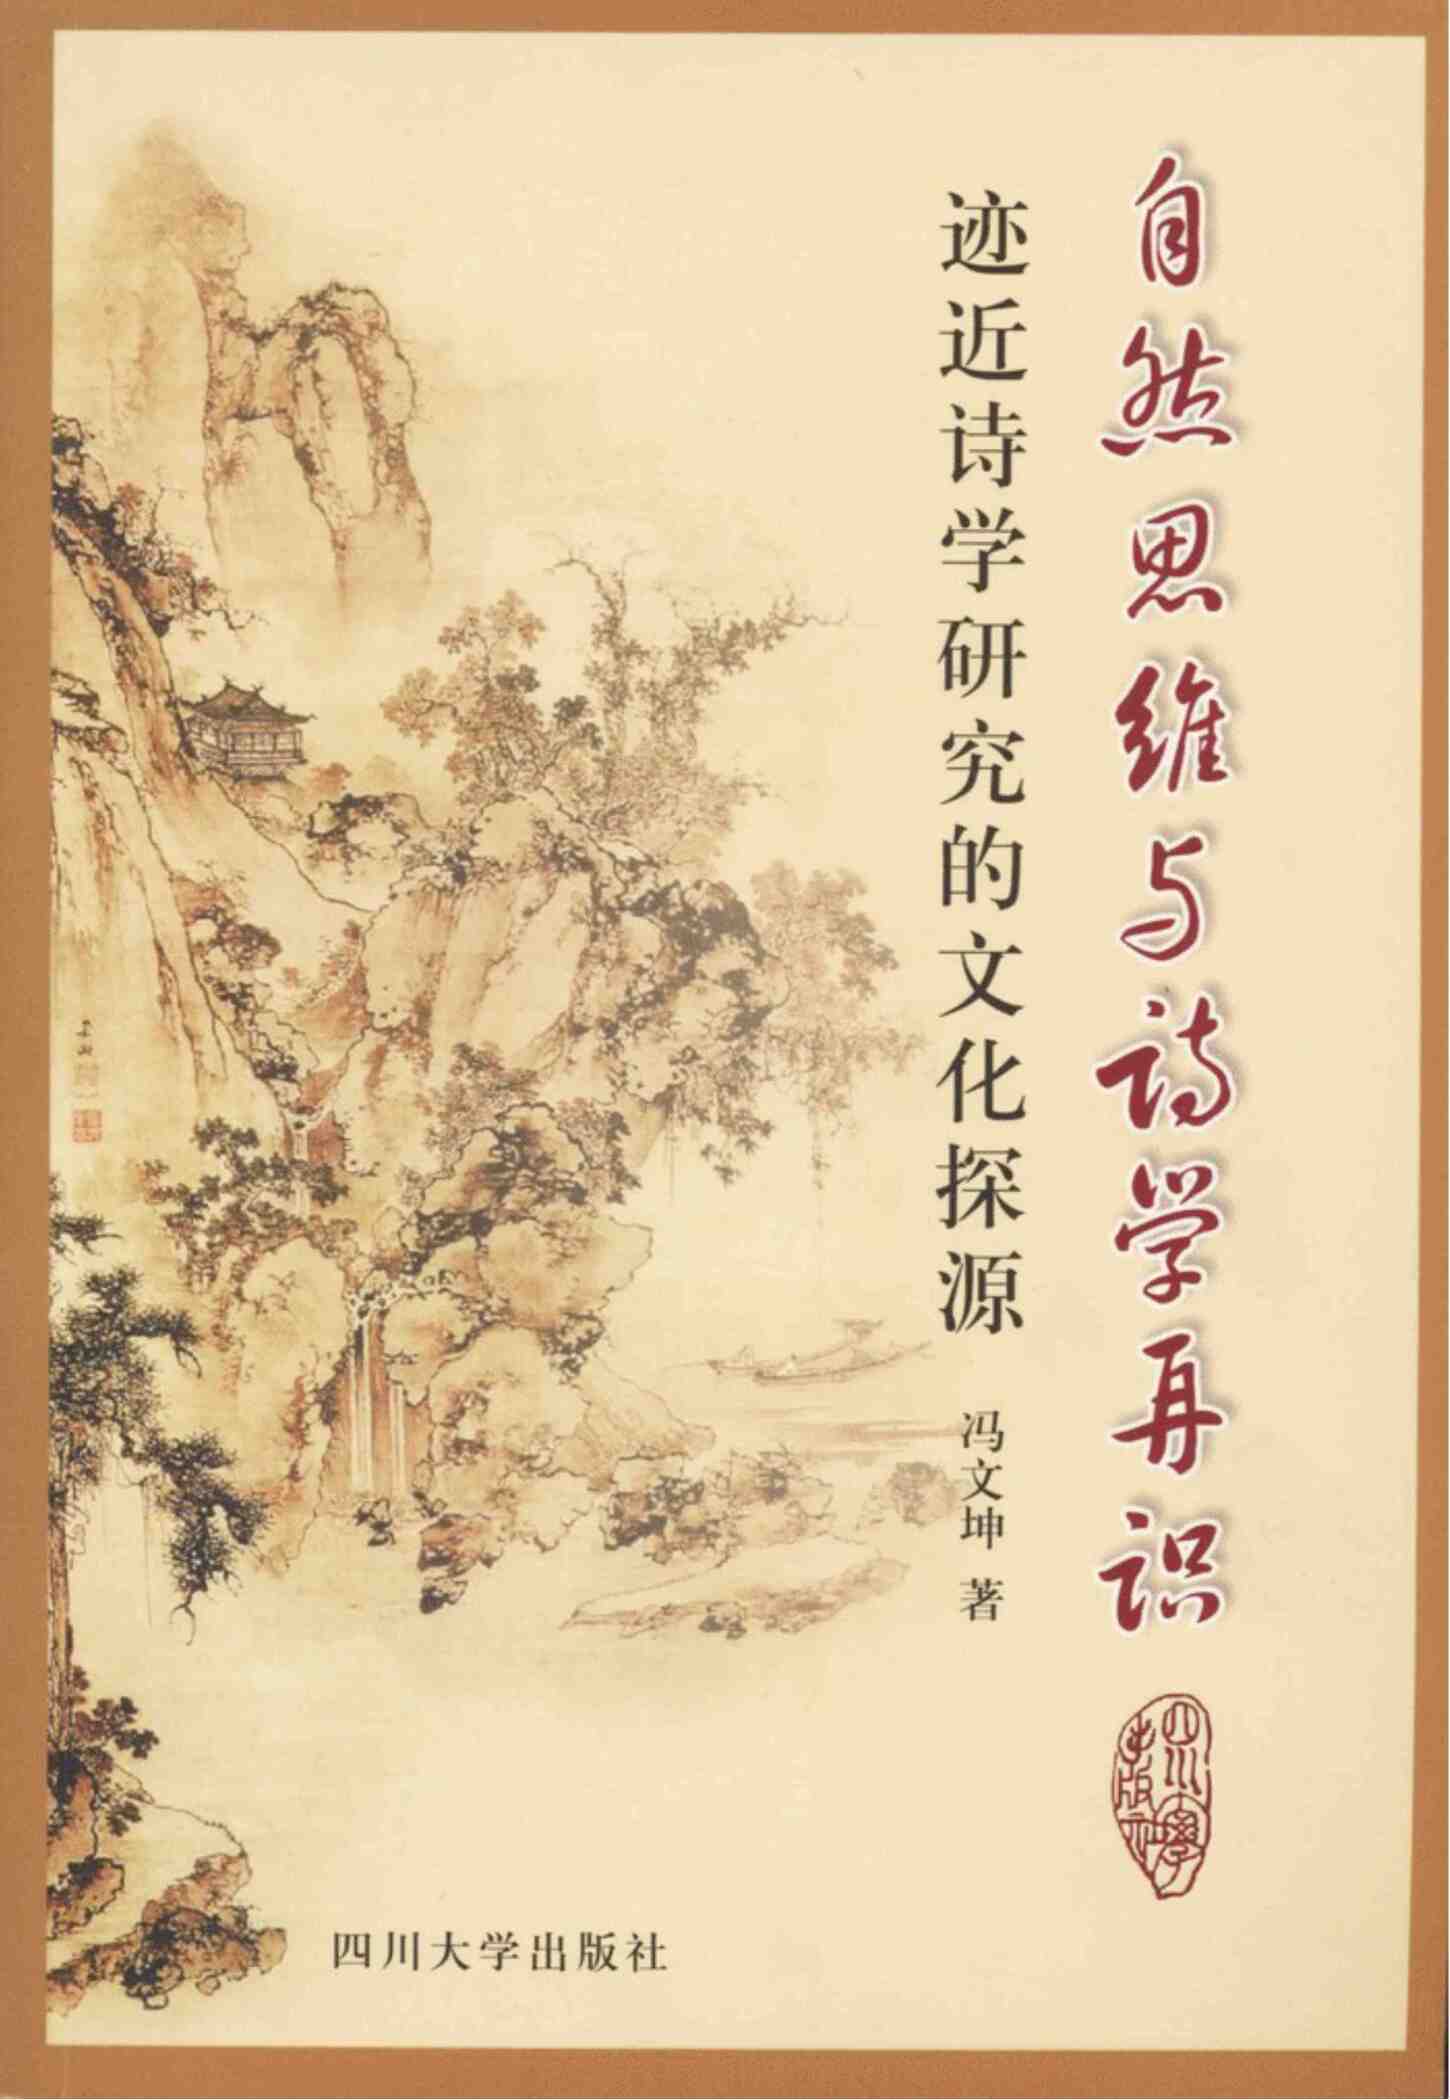 自然思维与诗学再识
迹近诗学研究的文化探源
冯文坤 著
四川大学出版社